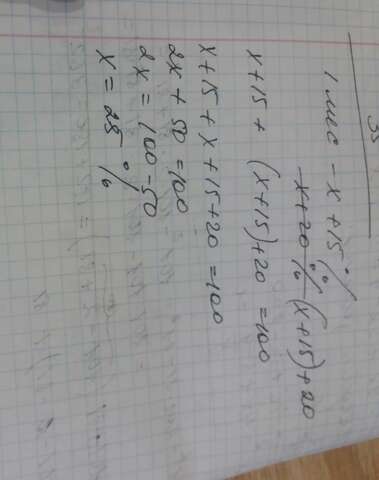 35
1 мес - x + 15%
x + 20% (x+15)+20
x+15 + (x+15)+20 = 100
x+15+x+15+20 = 100
2x + 50 = 100
2x = 100-50
x = 25 %